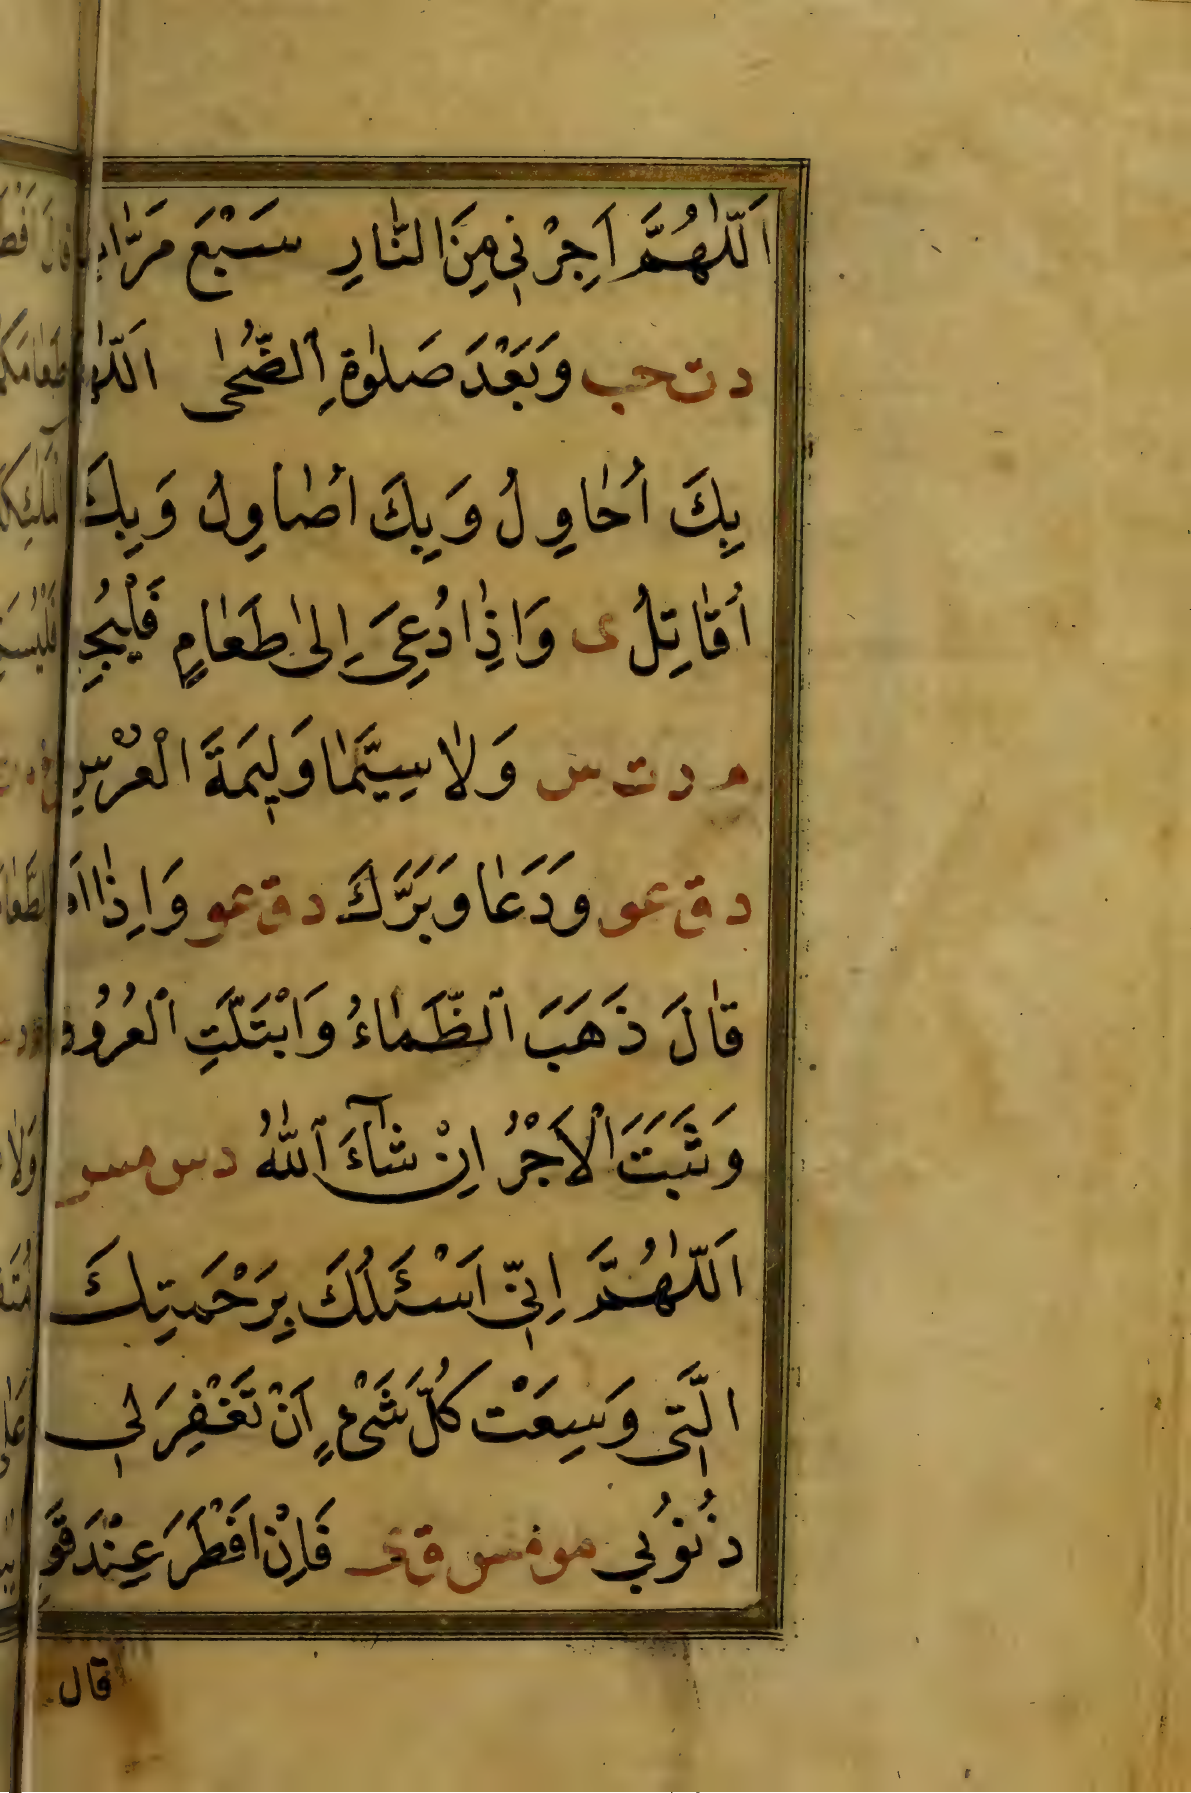 اَللّٰهُمَّ اَجِرْنِي مِنَ النَّارِ سَبْعَ مَرَّاتٍ
د ت حب وَبَعْدَ صَلٰوةِ الضُّحٰى اَللّٰهُمَّ
بِكَ اُحَاوِلُ وَبِكَ اُصَاوِلُ وَبِكَ
اُقَاتِلُ ى وَاِذَا دُعِيَ اِلٰى طَعَامٍ فَلْيُجِبْ
م د ت س وَلَا سِيَّمَا وَلِيمَةَ الْعُرْسِ
د ق عو وَدَعَا وَبَرَّكَ د ق عو وَاِذَا
قَالَ ذَهَبَ الظَّمَاءُ وَابْتَلَّتِ الْعُرُوقُ
وَثَبَتَ الْاَجْرُ اِنْ شَآءَ اللّٰهُ د س مس
اَللّٰهُمَّ اِنِّي اَسْئَلُكَ بِرَحْمَتِكَ
الَّتِي وَسِعَتْ كُلَّ شَيْءٍ اَنْ تَغْفِرَ لِي
ذُنُوبِي مو مس ق فَاِنْ اَفْطَرَ عِنْدَ قَوْ
قال